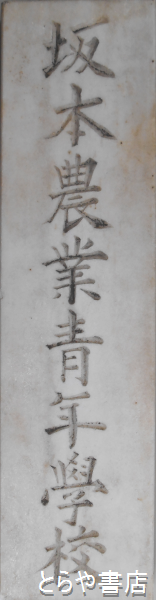 坂本農業青年學校
とらや書店